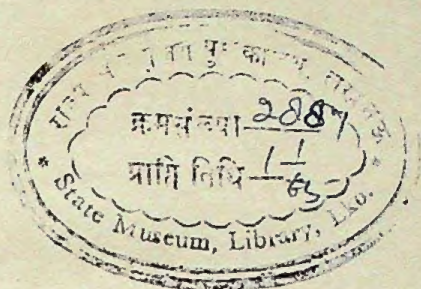 राज्य पुस्तकालय, लखनऊ
क्रमसंख्या 2887
प्राप्ति तिथि
* State Museum, Library, Lko. *